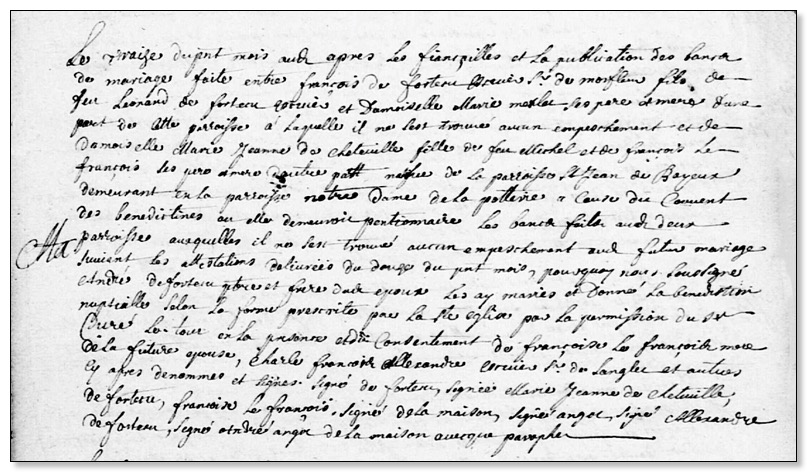 Le traize du pnt mois aud apres les fiancailles et la publication des bancs
de mariage faite entre francois de fortescu Escuier Sr. de monfleur fils de
feu Leonard de fortescu escuier et Damoiselle Marie merlet ses pere et mere d'une
part de cette parroisse a Laquelle il ne sest trouvé aucun empeschement et de
Damoiselle Marie Jeanne de Cheteville fille de feu Michel et de francoise Le
francois ses pere et mere d'autre part native de La parroisse St Jean de Bayeux
demeurant en La parroisse nostre Dame de La potterie a Cause du Couvent
des benedictines ou elle demeuroit pentionnaire Les bancs faits aud deux
parroisse auxquelles il ne sest trouvé aucun empeschement aud futur mariage
suivant les attestations delivrées du douze du pnt mois, pourquoy nous soussigné
André de fortescu pbre et frere dud epoux Les ay mariés et Donné La benediction
nuptialle selon La forme prescrite par La Ste Eglise par La permission du Sr
Curé Le tout en La presence et du Consentement de francoise Le francois mere
de La future epouse, Charle francois Allexandre escuier Sr. de Langlet et autres
cy apres denommés et signes. signé de fortescu, signée Marie Jeanne de Cheteville,
de fortescu, francoise Le francois, signé de La maison, signé angot, signé Allexandre
de fortescu, signé André angot de La maison avecque paraphe